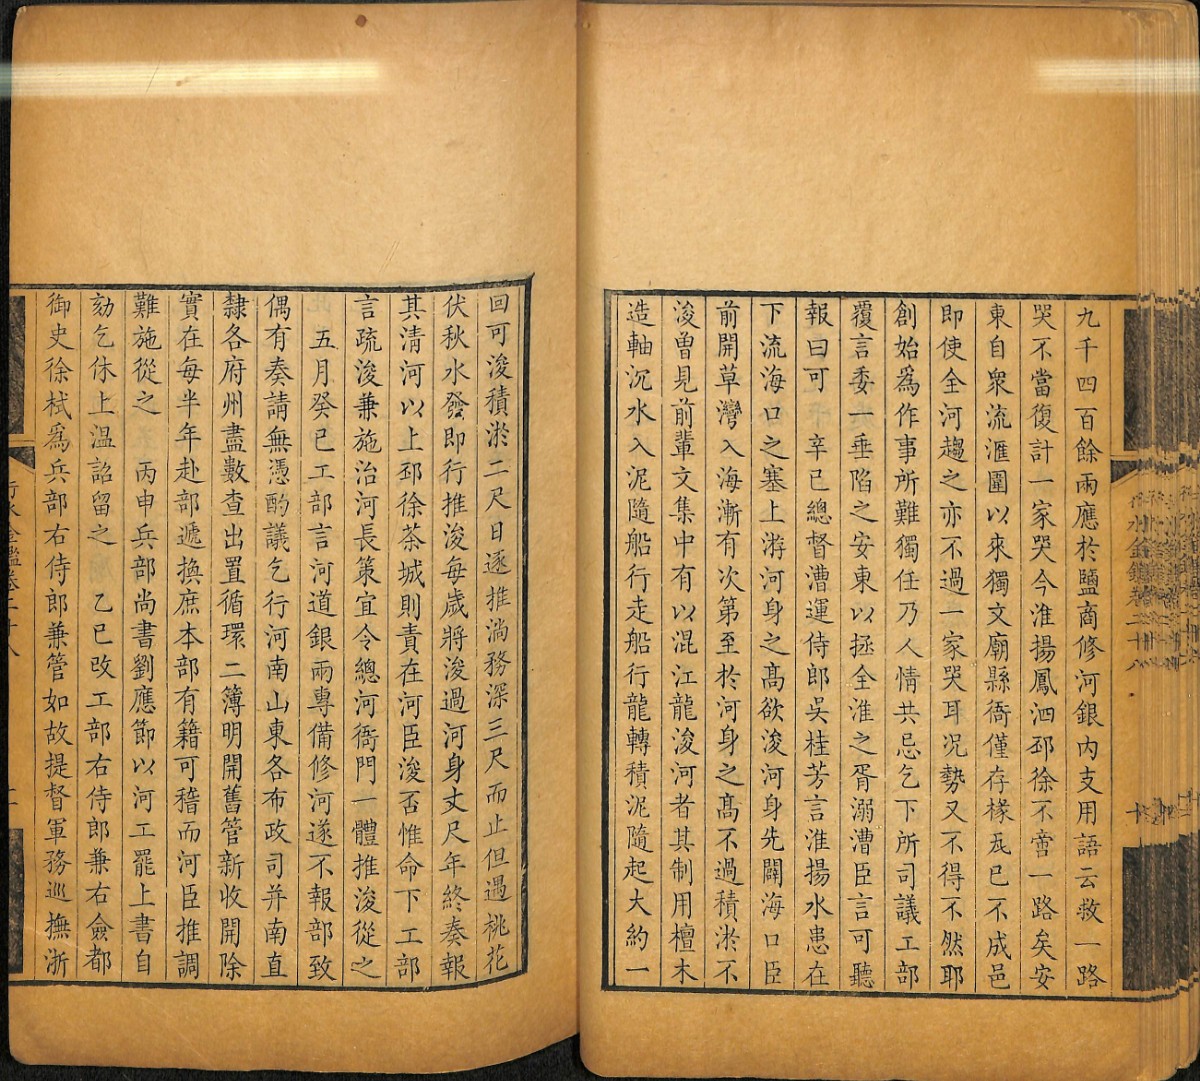 九千四百餘兩應於鹽商修河銀内支用語云救一路
哭不當復計一家哭今淮揚鳳泗邳徐不啻一路矣安
東自衆流滙圍以來獨文廟縣衙僅存椽瓦已不成邑
即使全河趨之亦不過一家哭耳况勢又不得不然耶
創始爲作事所難獨任乃人情共忌乞下所司議工部
覆言委一垂陷之安東以拯全淮之胥溺漕臣言可聽
報曰可　辛已總督漕運侍郎吳桂芳言淮揚水患在
下流海口之塞上游河身之髙欲浚河身先闢海口臣
前開草灣入海漸有次第至於河身之髙不過積淤不
浚曾見前輩文集中有以混江龍浚河者其制用檀木
造軸沉水入泥隨船行走船行龍轉積泥隨起大約一
回可浚積淤二尺日逐推淌務深三尺而止但遇桃花
伏秋水發即行推浚每歲將浚過河身丈尺年終奏報
其清河以上邳徐茶城則責在河臣浚否惟命下工部
言疏浚兼施治河長策宜令總河衙門一體推浚從之
五月癸已工部言河道銀兩專備修河遂不報部致
偶有奏請無憑酌議乞行河南山東各布政司并南直
隸各府州盡數查出置循環二簿明開舊管新收開除
實在每半年赴部遞換庶本部有籍可稽而河臣推調
難施從之　丙申兵部尚書劉應節以河工罷上書自
劾乞休上温詔留之　乙已改工部右侍郎兼右僉都
御史徐栻爲兵部右侍郎兼管如故提督軍務巡撫浙
行水金鑑卷二十八